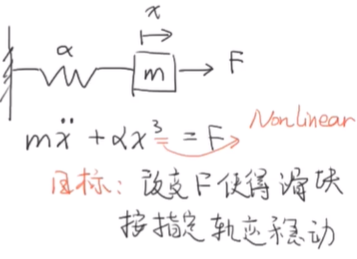 x
α
m
F
mẍ + αx³ = F
Nonlinear
目标: 改变F使得滑块
按指定轨迹移动